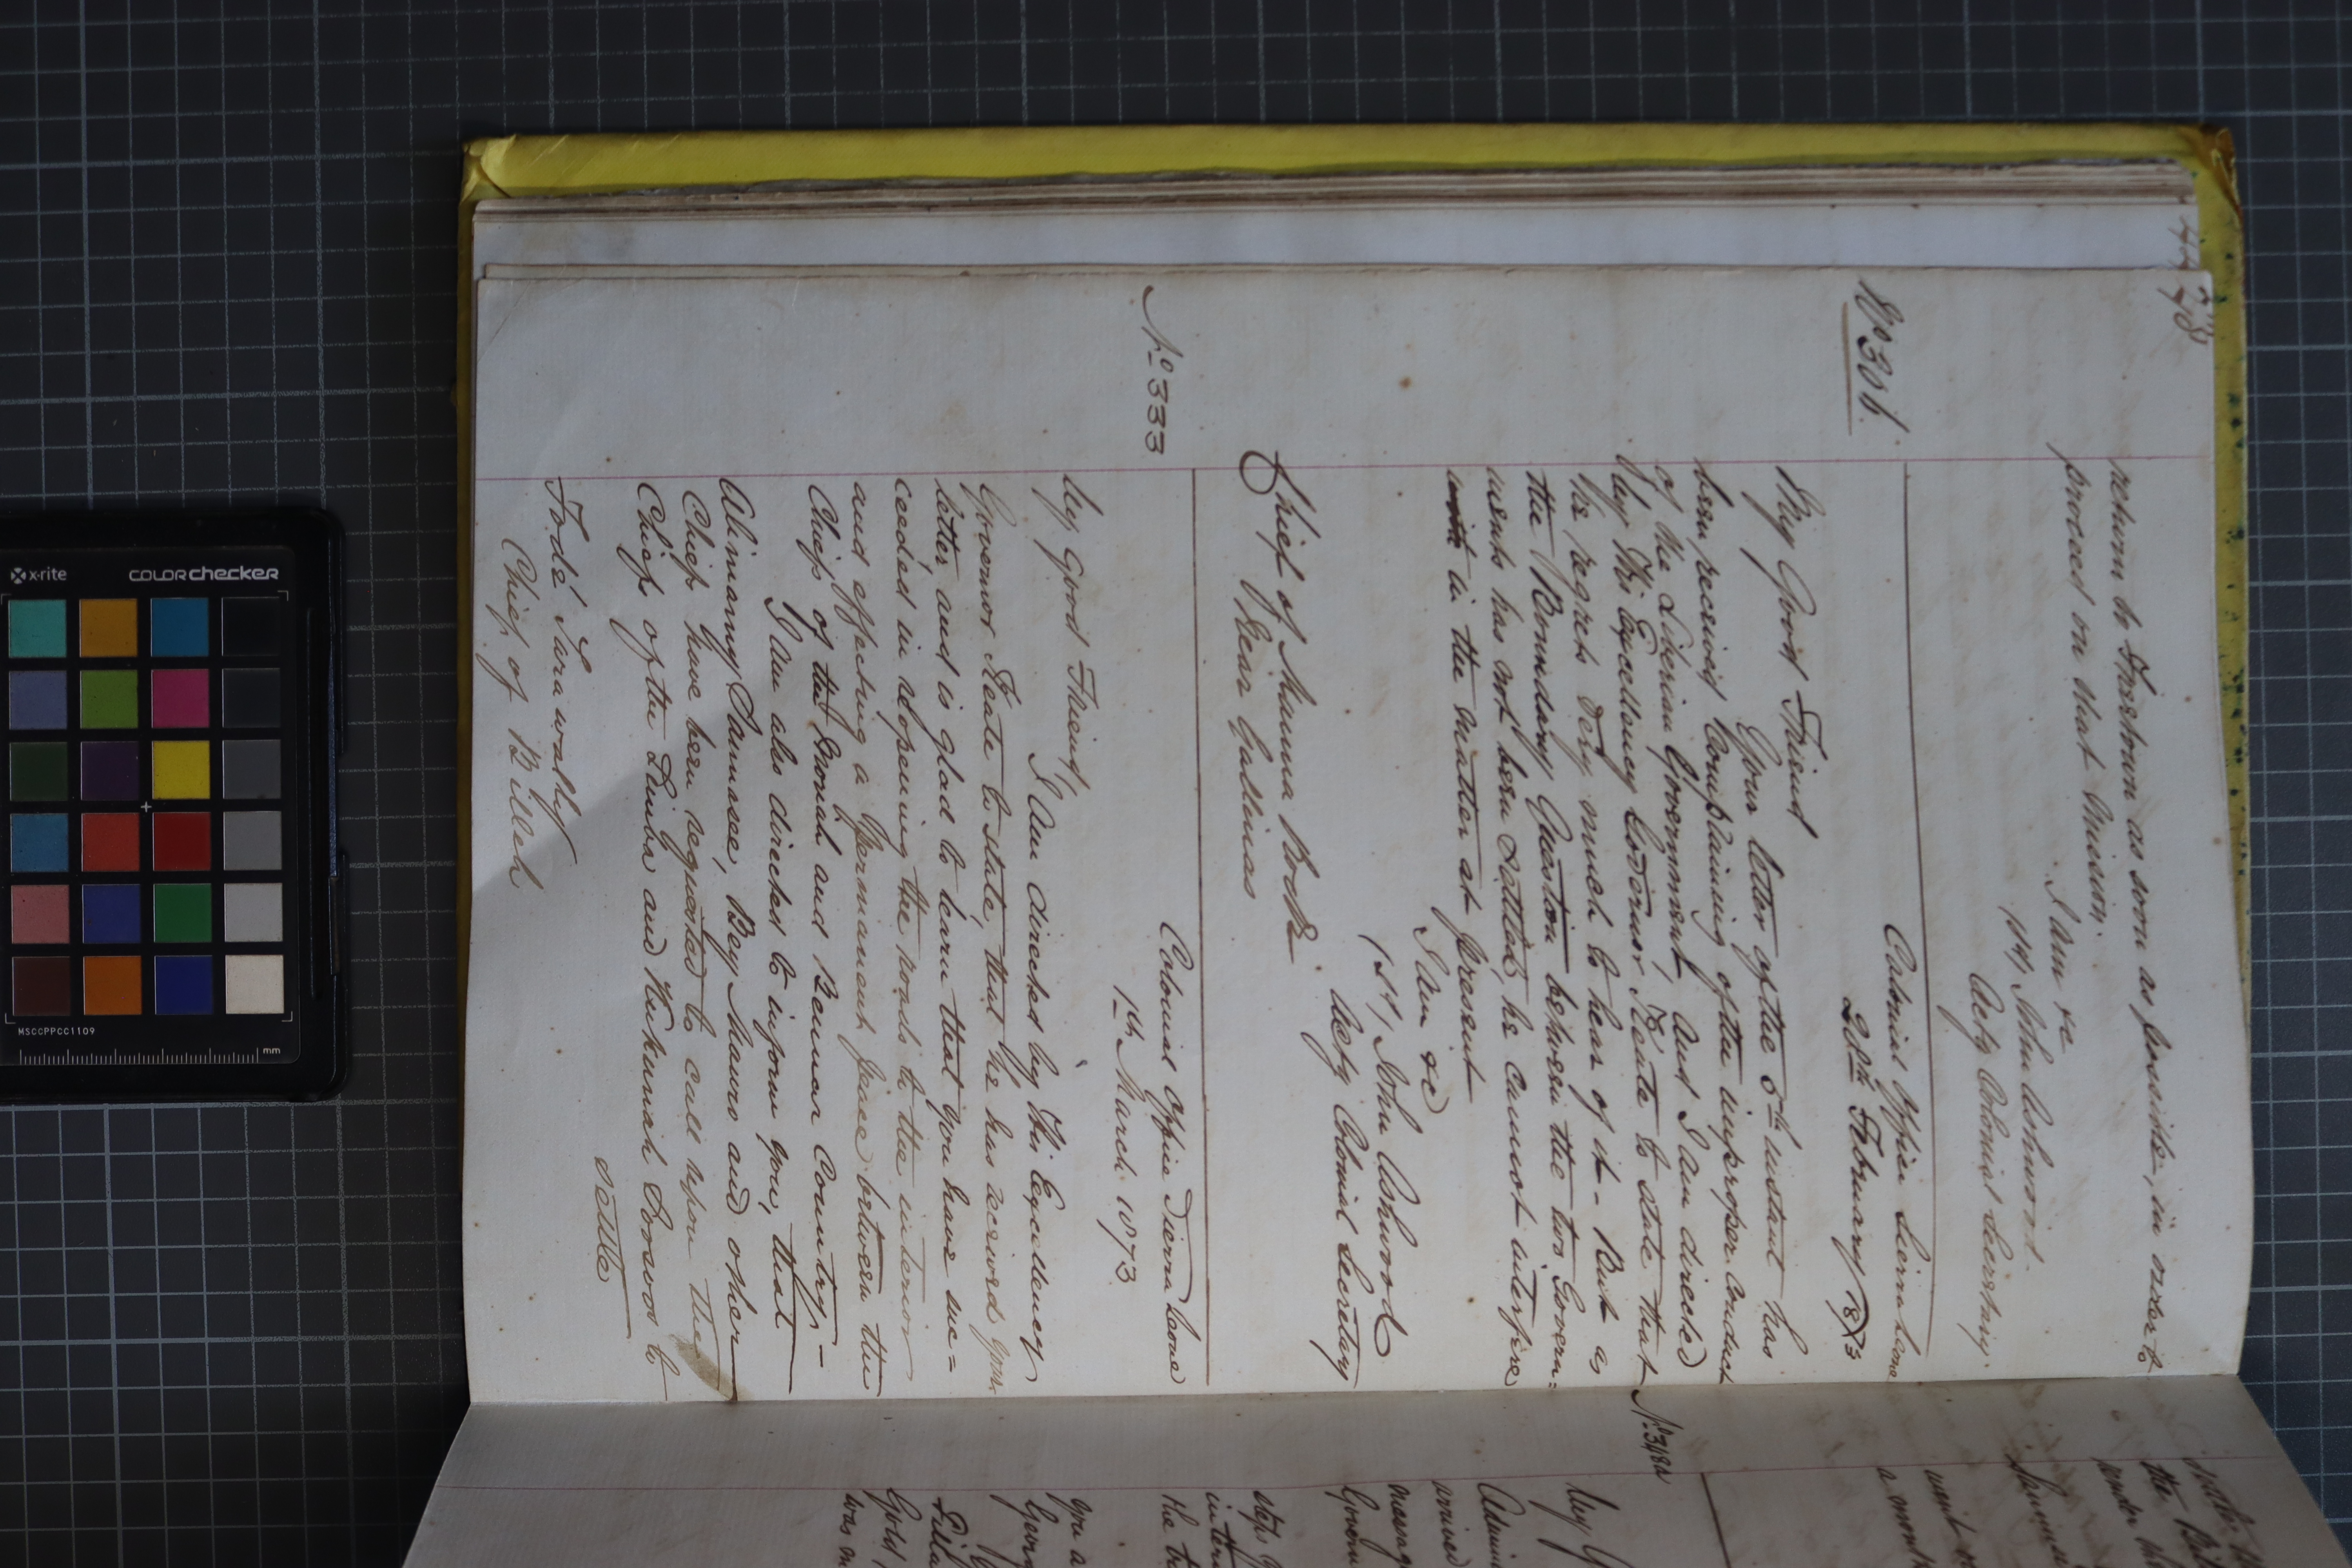 278
return to Freetown as soon as possible, in order to
proceed on that mission.
I am &c
John Ashwood
Actg Colonial Secretary.
No 306.
Colonial Office Sierra Leone
20th February 1873
My Good Friend
Your letter of the 5th instant has
been received complaining of the improper conduct
of the Liberian Government, and I am directed
by His Excellency Governor Keate to state that
he regrets very much to hear of it - But as
the Boundary Question between the two Govern=
ments has not been settled, he cannot interfere
in the matter at present
I am &c
John Ashwood
Actg Colonial Secretary
Chief of Manna Rock
Near Gallinas
No 333
Colonial Office Sierra Leone
1st March 1873.
My Good Friend,
I am directed by His Excellency
Governor Keate to state, that he has received your
letter, and is glad to learn that you have suc=
ceeded in reopening the roads to the interior
and effecting a permanent peace between the
Chiefs of the and Bennar Country.-
I am also directed to inform you, that
Alimamy Sannassee, Bey Mauro and other
Chiefs have been requested to call upon the
Chiefs of the Limba and Kukunah Sosoos to
settle
Fodé Tarawally
Chief of Billeh
No 348A
My G
arrived
messag
Govern
steps
inter
the tr
you a
Gold
was n
a mon
under the
the B